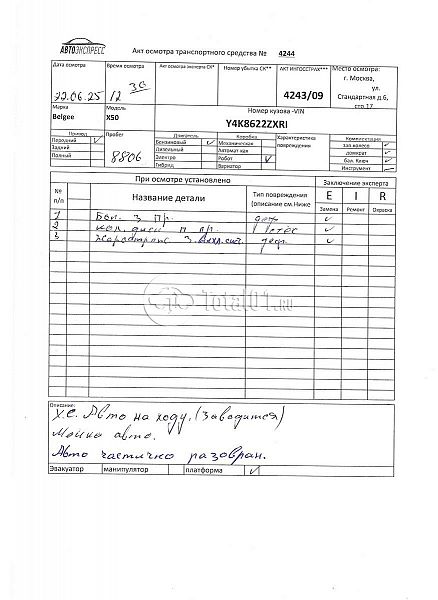 АВТОЭКСПРЕСС
Акт осмотра транспортного средства № 4244
Дата осмотра Время осмотра Акт осмотра эксперта СК* Номер убытка СК** АКТ ИНГОССТРАХ*** Место осмотра:
г. Москва,
ул.
Стандартная д.6,
стр.17
22.06.25 12 30 4243/09
Марка Модель Номер кузова -VIN
Belgee X50 Y4K8622ZXRI
Привод Пробег Двигатель Коробка Характеристика повреждения Комплектация
Передний Бензиновый Механическая зап.колесо
Задний Дизельный Автомат кая домкрат
Полный 8806 Электро Робот бал. Ключ
Гибрид Вариатор Инструмент
При осмотре установлено Заключение эксперта
№ п/п Название детали Тип повреждения (описание см.Ниже E I R
Замена Ремонт Окраска
1 Бок. з пр.
2 кол. диск п пр.
3
Total01.RU
Описание:
х.с. Авто на ходу. (Заводится)
Мойка авто.
Авто частично разобран.
Эвакуатор манипулятор платформа